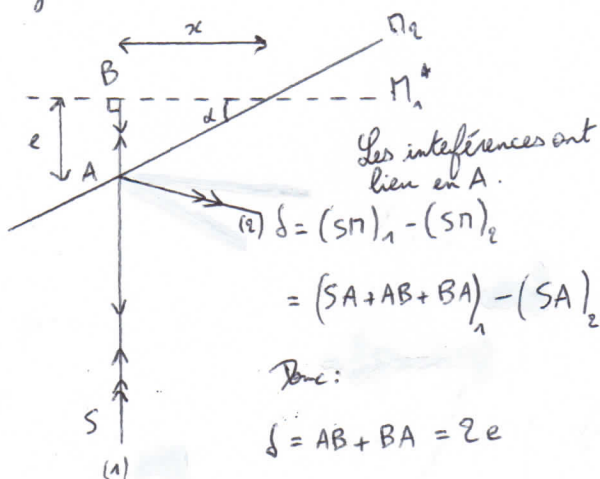 x
M₂
B
M₁*
α
e
Les inteférences ont
lieu en A.
A
(2) δ = (SM)₁ - (SM)₂
= (SA + AB + BA)₁ - (SA)₂
Donc :
S
δ = AB + BA = 2e
(1)